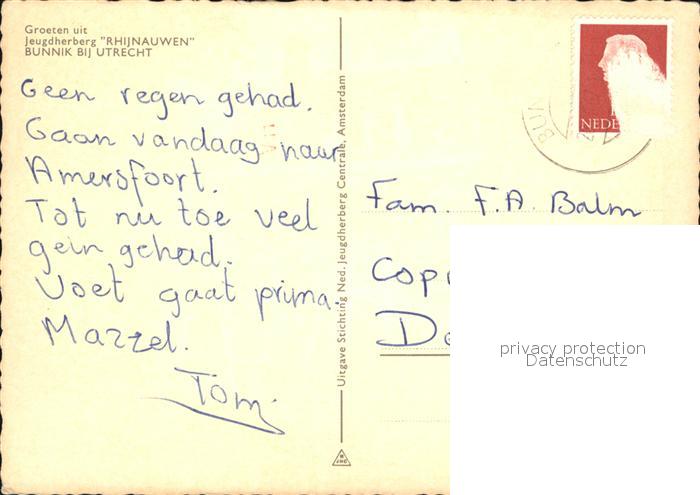 Groeten uit
Jeugdherberg "RHIJNAUWEN"
BUNNIK BIJ UTRECHT
Geen regen gehad.
Gaan vandaag naar
Amersfoort.
Tot nu toe veel
gein gehad.
Voet gaat prima.
Mazzel.
Tom.
Uitgave Stichting Ned. Jeugdherberg Centrale, Amsterdam
NEDE
BUN
Fam. F.A. Balm
Cop
De
privacy protection
Datenschutz